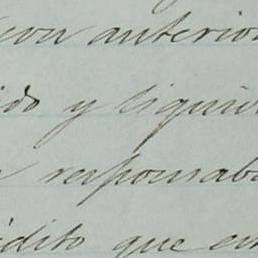 con anterior
ido y liquid
responsab
édito que en